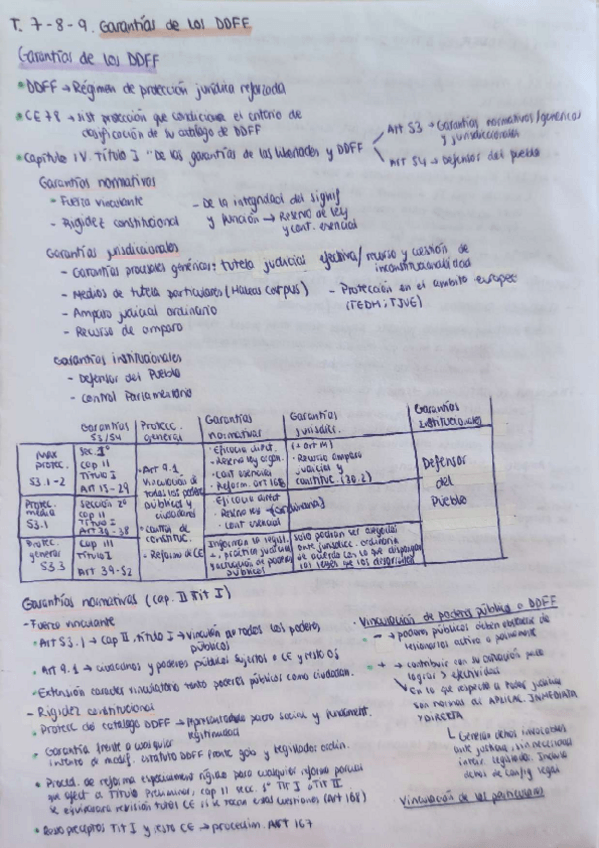 T. 7-8-9. Garantías de los DDFF
Garantías de los DDFF
• DDFF → Régimen de protección jurídica reforzada
• CE78 → sist protección que condiciona el criterio de
clasificación de su catálogo de DDFF
• Capítulo IV. Título I "De las garantías de las libertades y DDFF
Art 53 → Garantías normativas/genéricas
y jurisdiccionales
Art 54 → Defensor del pueblo
Garantías normativas
- Fuerza vinculante
- Rigidez constitucional
- De la integridad del signif
y función → Reserva de ley
y cont. esencial
Garantías jurisdiccionales
- Garantías procesales genéricas: tutela judicial efectiva/recurso y cuestión de
inconstitucionalidad
- Medios de tutela particulares (Habeas Corpus)
- Amparo judicial ordinario
- Recurso de amparo
- Protección en el ámbito europeo
(TEDH; TJUE)
Garantías institucionales
- Defensor del Pueblo
- Control Parlamentario
Garantías
53/54
Protecc.
general
Garantías
normativas
Garantías
jurisdicc.
Garantías
institucionales
Max
protec.
53.1-2
Sec. 1ª
Cap II
Título I
Art 15-29
• Art 9.1
vinculación de
todos los poderes
públicos y
ciudadanos
• Control de
constituc.
• Reforma de CE
• Eficacia direct.
• Reserva ley orgán.
• Cont esencial
• Reform. art 168
(+ art 14)
• Recurso amparo
judicial y
constituc. (30.2)
Defensor
del
Pueblo
Protec.
media
53.1
Sección 2ª
Cap II
Título I
Art 30-38
• Eficacia direct
• Reserva ley (ordinaria)
• Cont esencial
Protec.
general
53.3
Cap III
Título I
Art 39-52
Informan la legisl.
, práctica judicial
y actuación de poderes
públicos
Solo podrán ser alegados
ante jurisdicc. ordinaria
de acuerdo con lo que dispongan
las leyes que los desarrollen
Garantías normativas (cap. II Tit I)
- Fuerza vinculante
• Art 53.1 → Cap II, título I → Vinculan a todos los poderes
públicos
• Art 9.1 → ciudadanos y poderes públicos sujetos a CE y resto OJ
• Extensión carácter vinculatorio tanto poderes públicos como ciudadan.
- Rigidez constitucional
• Protecc del catálogo DDFF → representado pacto social y fundament.
legitimidad
• Garantía frente a cualquier
intento de modif. estatuto DDFF frente gob y legislador ordin.
• Proced. de reforma especialmente rígido para cualquier reforma parcial
que afect a Título Preliminar, cap II secc. 1ª Tit I o Tit II
se equiparará revisión total CE si se tocan esas cuestiones (Art 168)
• Resto preceptos Tit I y resto CE → procedim. Art 167
· Vinculación de poderes públicos a DDFF
- → poderes públicos deben abstenerse de
lesionarlos activa o pasivamente
+ → contribuir con su actuación para
lograr su efectividad
En lo que respecta a poder judicial
son normas de APLICAC. INMEDIATA
Y DIRECTA
Generan dchos invocables
ante justicia, sin necesidad
interv. legislador. Incluso
dchos de config legal
· Vinculación de los particulares